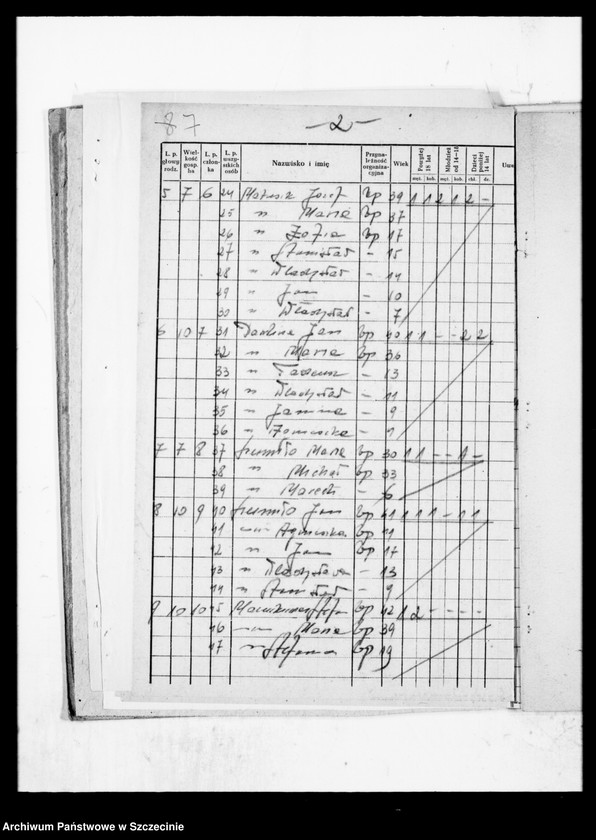 87
-2-
L. p. głowy rodz. Wielkość gosp. ha L. p. członka L. p. wszystkich osób Nazwisko i imię Przynależność organizacyjna Wiek Powyżej 18 lat Młodzież od 14-18 Dzieci poniżej 14 lat Uwa
męż. kob. męż. kob. chł. dz.
5 7 6 24 Józef bp 39 1 1 2 1 2 -
25 " Maria bp 37
26 " Zofia bp 17
27 " Stanisław - 15
28 " Władysław - 14
29 " Jan - 10
30 " Władysław - 7
6 10 7 31 Jan bp 40 1 1 - - 2 2
32 " Maria bp 36
33 " Tadeusz - 13
34 " Władysław - 11
35 " Janina - 9
36 " -
7 7 8 37 Maria bp 30 1 1 - - 1 -
38 " Michał bp 33
39 " Marek - 6
8 10 9 40 Jan bp 41 1 1 1 - 1 1
41 Agnieszka bp 41
42 " Jan bp 17
43 " Władysława - 13
44 " Stanisław - 9
9 10 10 45 bp 42 1 2 - - - -
46 Maria bp 39
47 " Stefania bp 19
Archiwum Państwowe w Szczecinie